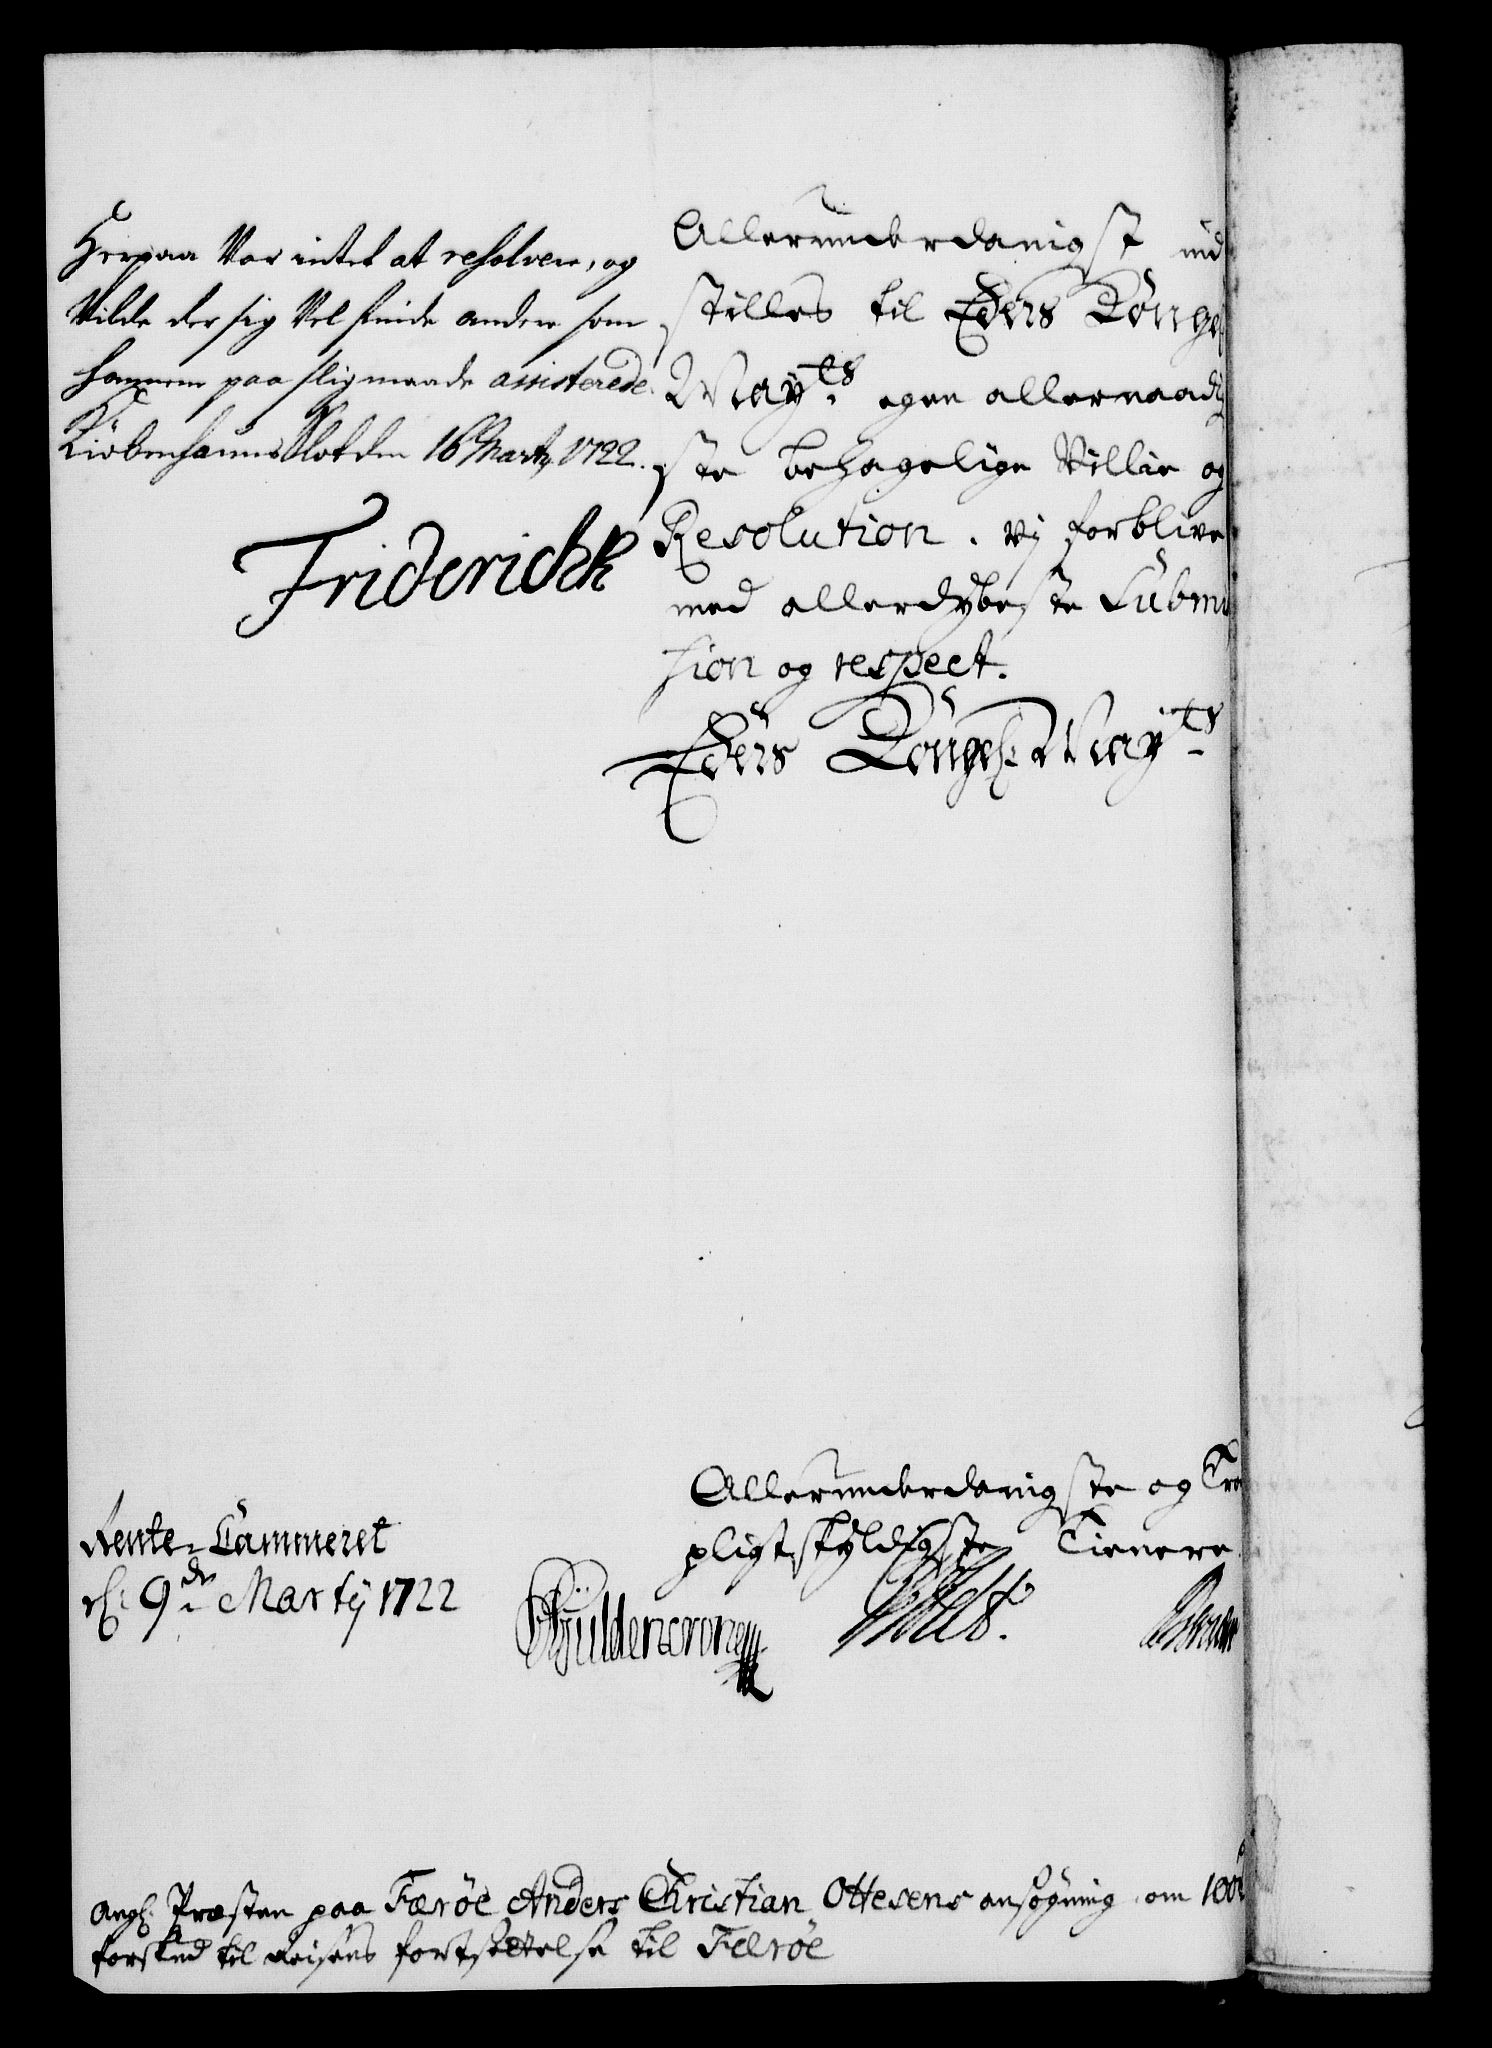 Herpaa Var intet at resolvere, og
Vilde der sig Vel finde andere som
hannem paa slig maade assisterede.
Kiöbenhauns Slot den 16 Marty 1722.
Friderich R
Allerunderdanigst ind
stilles til Eders Kongel
Mayts. egen allernaadig
ste behagelige Villie og
Resolution. Vj forblive
med allerdybeste Submi
sion og respect.
Eders Kongel. Mayts
Allerunderdanigste og
pligtskyldigste Tienere
Rente-Cammeret
d. 9de Martij 1722
Güldencrone
ang. Præsten paa Færöe Anders Christian Ottesens ansögning om 100
forskud til Reisens fortsættelse til Færöe